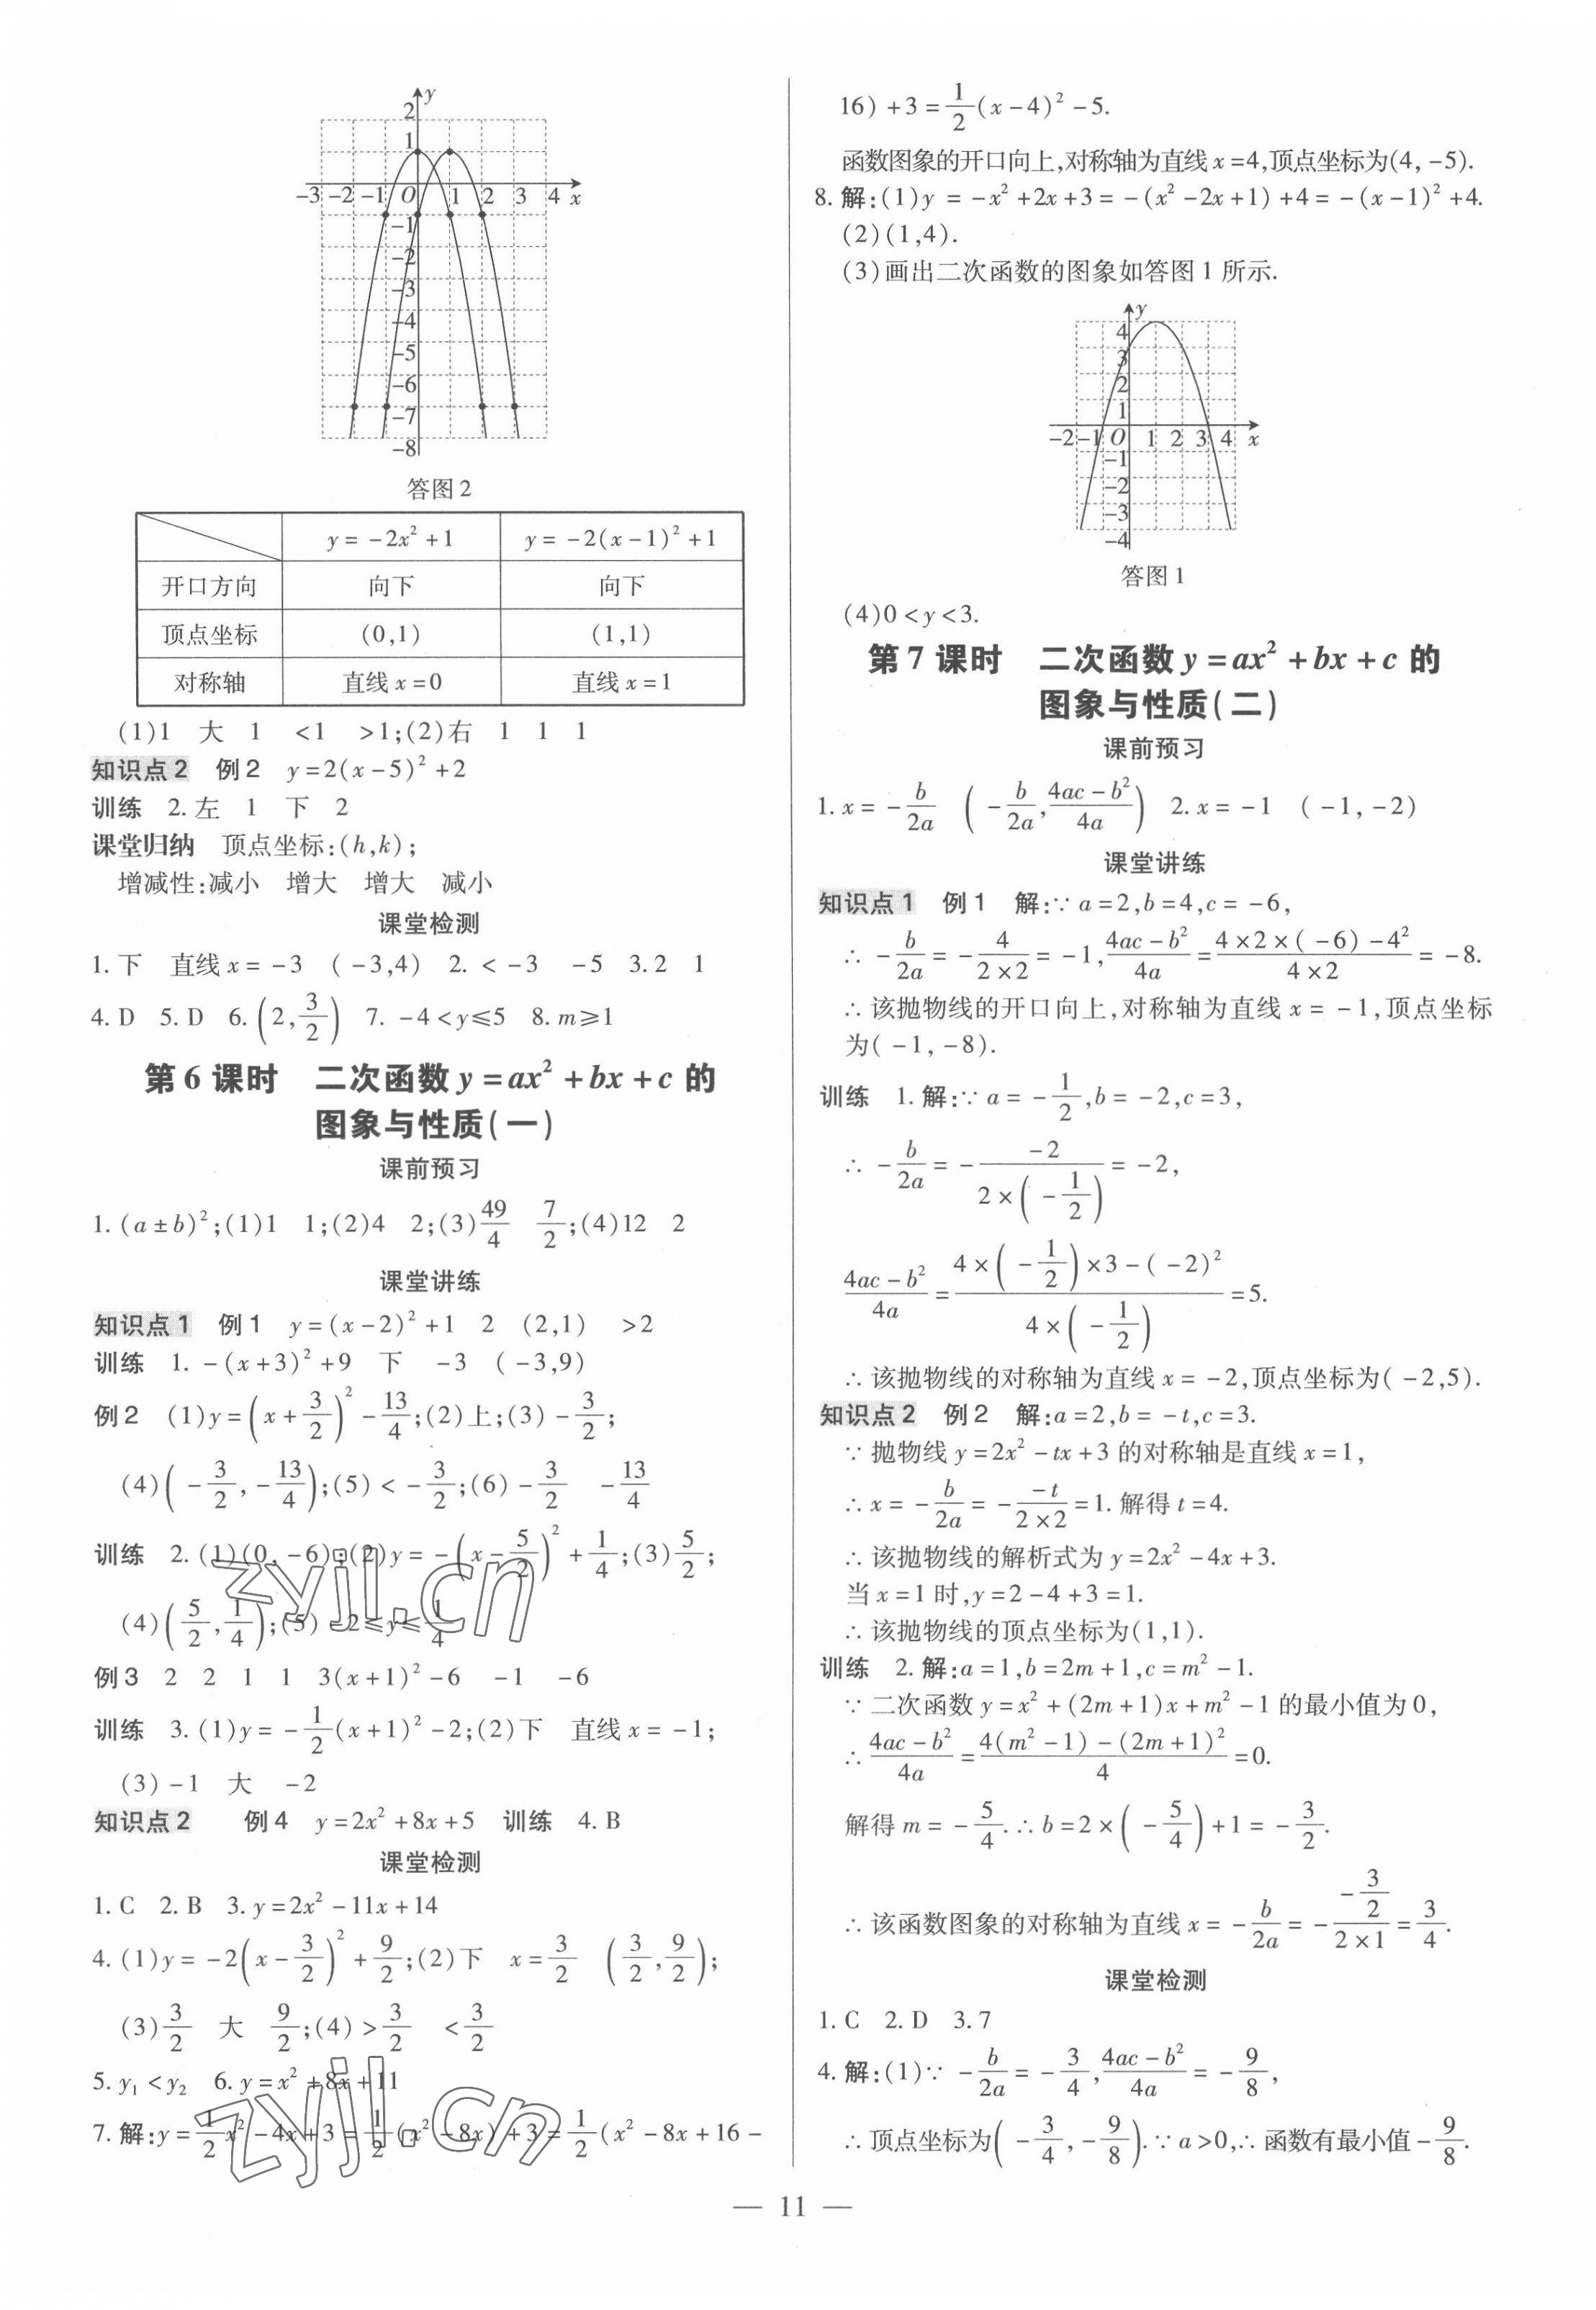 y
2
1
-3 -2 -1 O 1 2 3 4 x
-1
-2
-3
-4
-5
-6
-7
-8
答图2
y=-2x²+1 y=-2(x-1)²+1
开口方向 向下 向下
顶点坐标 (0,1) (1,1)
对称轴 直线x=0 直线x=1
(1)1 大 1 <1 >1;(2)右 1 1 1
知识点2 例2 y=2(x-5)²+2
训练 2.左 1 下 2
课堂归纳 顶点坐标:(h,k);
增减性:减小 增大 增大 减小
课堂检测
1.下 直线x=-3 (-3,4) 2.<-3 -5 3.2 1
4.D 5.D 6.(2,3/2) 7.-4<y≤5 8.m≥1
第6课时 二次函数y=ax²+bx+c的
图象与性质(一)
课前预习
1.(a±b)²;(1)1 1;(2)4 2;(3)49/4 7/2;(4)12 2
课堂讲练
知识点1 例1 y=(x-2)²+1 2 (2,1) >2
训练 1.-(x+3)²+9 下 -3 (-3,9)
例2 (1)y=(x+3/2)²-13/4;(2)上;(3)-3/2;
(4)(-3/2,-13/4);(5)<-3/2;(6)-3/2 -13/4
训练 2.(1)(0,-6);(2)y=-(x-5/2)²+1/4;(3)5/2;
(4)(5/2,1/4);(5)-2≤y≤1/4
例3 2 2 1 1 3(x+1)²-6 -1 -6
训练 3.(1)y=-1/2(x+1)²-2;(2)下 直线x=-1;
(3)-1 大 -2
知识点2 例4 y=2x²+8x+5 训练 4.B
课堂检测
1.C 2.B 3.y=2x²-11x+14
4.(1)y=-2(x-3/2)²+9/2;(2)下 x=3/2 (3/2,9/2);
(3)3/2 大 9/2;(4)>3/2 <3/2
5.y₁<y₂ 6.y=x²+8x+11
7.解:y=1/2x²-4x+3=1/2(x²-8x)+3=1/2(x²-8x+16-
zyjl.cn
zyjl.cn
16)+3=1/2(x-4)²-5.
函数图象的开口向上,对称轴为直线x=4,顶点坐标为(4,-5).
8.解:(1)y=-x²+2x+3=-(x²-2x+1)+4=-(x-1)²+4.
(2)(1,4).
(3)画出二次函数的图象如答图1所示.
y
4
3
2
1
-2 -1 O 1 2 3 4 x
-1
-2
-3
-4
答图1
(4)0<y<3.
第7课时 二次函数y=ax²+bx+c的
图象与性质(二)
课前预习
1.x=-b/2a (-b/2a,(4ac-b²)/4a) 2.x=-1 (-1,-2)
课堂讲练
知识点1 例1 解:∵a=2,b=4,c=-6,
∴-b/2a=-4/(2×2)=-1,(4ac-b²)/4a=(4×2×(-6)-4²)/(4×2)=-8.
∴该抛物线的开口向上,对称轴为直线x=-1,顶点坐标
为(-1,-8).
训练 1.解:∵a=-1/2,b=-2,c=3,
∴-b/2a=-(-2)/(2×(-1/2))=-2,
(4ac-b²)/4a=(4×(-1/2)×3-(-2)²)/(4×(-1/2))=5.
∴该抛物线的对称轴为直线x=-2,顶点坐标为(-2,5).
知识点2 例2 解:a=2,b=-t,c=3.
∵抛物线y=2x²-tx+3的对称轴是直线x=1,
∴x=-b/2a=-(-t)/(2×2)=1.解得t=4.
∴该抛物线的解析式为y=2x²-4x+3.
当x=1时,y=2-4+3=1.
∴该抛物线的顶点坐标为(1,1).
训练 2.解:a=1,b=2m+1,c=m²-1.
∵二次函数y=x²+(2m+1)x+m²-1的最小值为0,
∴(4ac-b²)/4a=(4(m²-1)-(2m+1)²)/4=0.
解得m=-5/4.∴b=2×(-5/4)+1=-3/2.
∴该函数图象的对称轴为直线x=-b/2a=-(-3/2)/(2×1)=3/4.
课堂检测
1.C 2.D 3.7
4.解:(1)∵-b/2a=-3/4,(4ac-b²)/4a=-9/8,
∴顶点坐标为(-3/4,-9/8).∵a>0,∴函数有最小值-9/8.
— 11 —